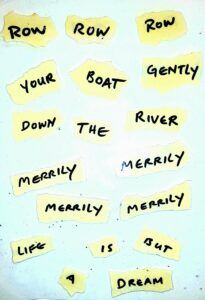 ROW ROW ROW
YOUR BOAT GENTLY
DOWN THE RIVER
MERRILY MERRILY
MERRILY MERRILY
LIFE IS BUT
A DREAM